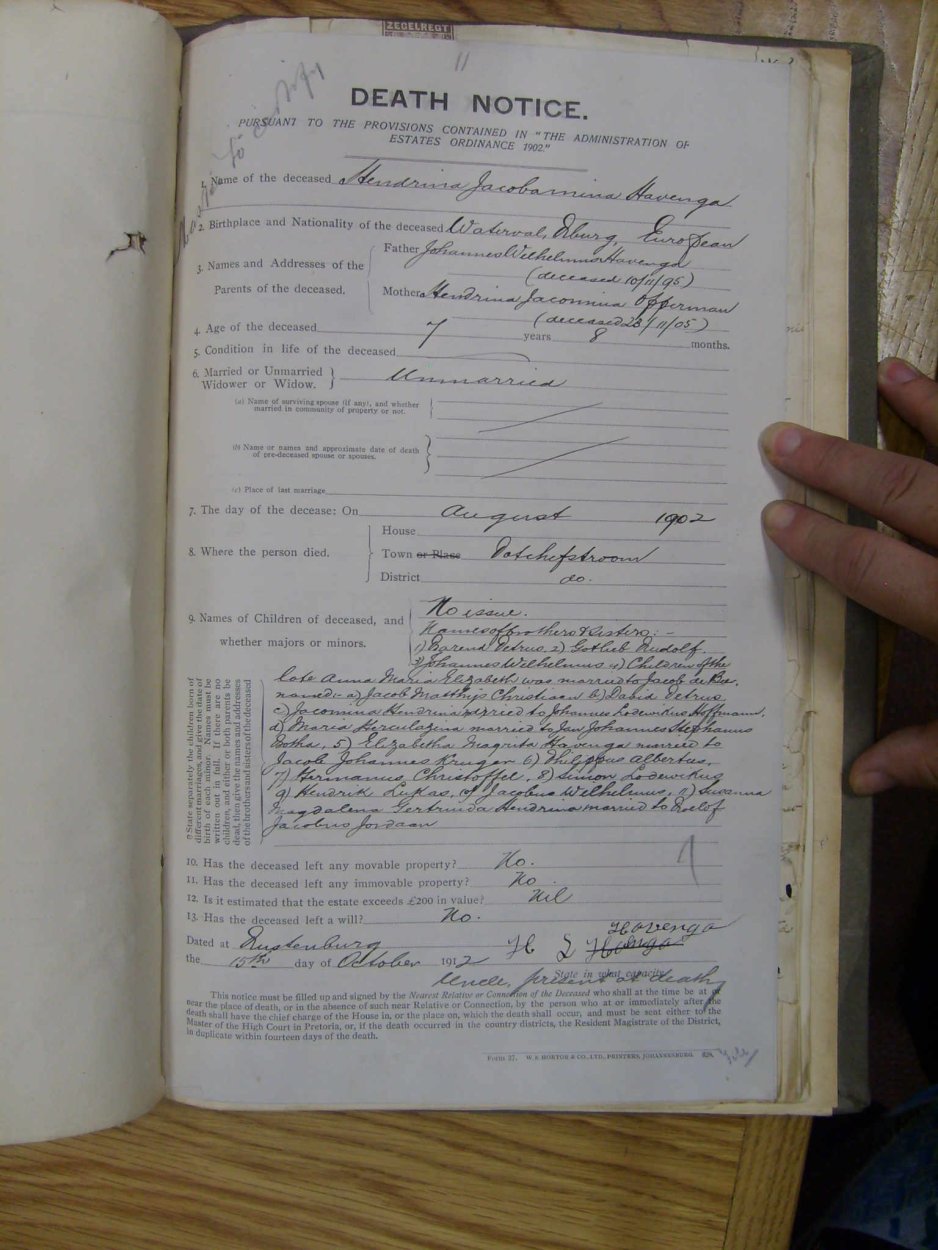 ZEGELREGT
11
DEATH NOTICE.
PURSUANT TO THE PROVISIONS CONTAINED IN "THE ADMINISTRATION OF
ESTATES ORDINANCE 1902."
1. Name of the deceased Hendrina Jacobamina Havenga
2. Birthplace and Nationality of the deceased Waterval, Rburg, European
3. Names and Addresses of the Parents of the deceased.
Father Johannes Wilhelmus Havenga
(deceased 10/11/95)
Mother Hendrina Jacomina Offerman
(deceased 23/11/05)
4. Age of the deceased 7 years 8 months.
5. Condition in life of the deceased
6. Married or Unmarried
Widower or Widow. Unmarried
(a) Name of surviving spouse (if any), and whether
married in community of property or not.
(b) Name or names and approximate date of death
of pre-deceased spouse or spouses.
(c) Place of last marriage
7. The day of the decease: On August 1902
8. Where the person died.
House
Town or Place Potchefstroom
District do.
9. Names of Children of deceased, and
whether majors or minors.
No issue.
Names of brothers & sisters: -
1) Barend Petrus, 2) Gotlieb Rudolf.
3) Johannes Wilhelmus 4) Children of the
late Anna Maria Elizabeth was married to Jacob de Bee.
named:- a) Jacob Matthijs Christiaan b) David Petrus
c) Jacomina Hendrina married to Johannes Lodewikus Hoffmann,
d) Maria Herculazina married to Jan Johannes Stephanus
Botha, 5) Elizabetha Magrita Havenga married to
Jacob Johannes Kruger 6) Philippus Albertus,
7) Hermanus Christoffel, 8) Simon Lodewikus
9) Hendrik Lukas, 10) Jacobus Wilhelmus, 11) Susanna
Magdalena Gertruida Hendrina married to Roelof
Jacobus Jordaan
State separately the children born of
different marriages, and give the date of
birth of each minor. Names must be
written out in full. If there are no
children, and either or both parents be
dead, then give the names and addresses
of the brothers and sisters of the deceased
10. Has the deceased left any movable property? No.
11. Has the deceased left any immovable property? No
12. Is it estimated that the estate exceeds £200 in value? Nil
13. Has the deceased left a will? No.
Havenga
Dated at Rustenburg H L
the 15th day of October 1912
State in what capacity.
Uncle, present at death
This notice must be filled up and signed by the Nearest Relative or Connection of the Deceased who shall at the time be at or
near the place of death, or in the absence of such near Relative or Connection, by the person who at or immediately after the
death shall have the chief charge of the House in, or the place on, which the death shall occur, and must be sent either to the
Master of the High Court in Pretoria, or, if the death occurred in the country districts, the Resident Magistrate of the District,
in duplicate within fourteen days of the death.
Form 37. W. E HORTOR & CO., LTD., PRINTERS, JOHANNESBURG.